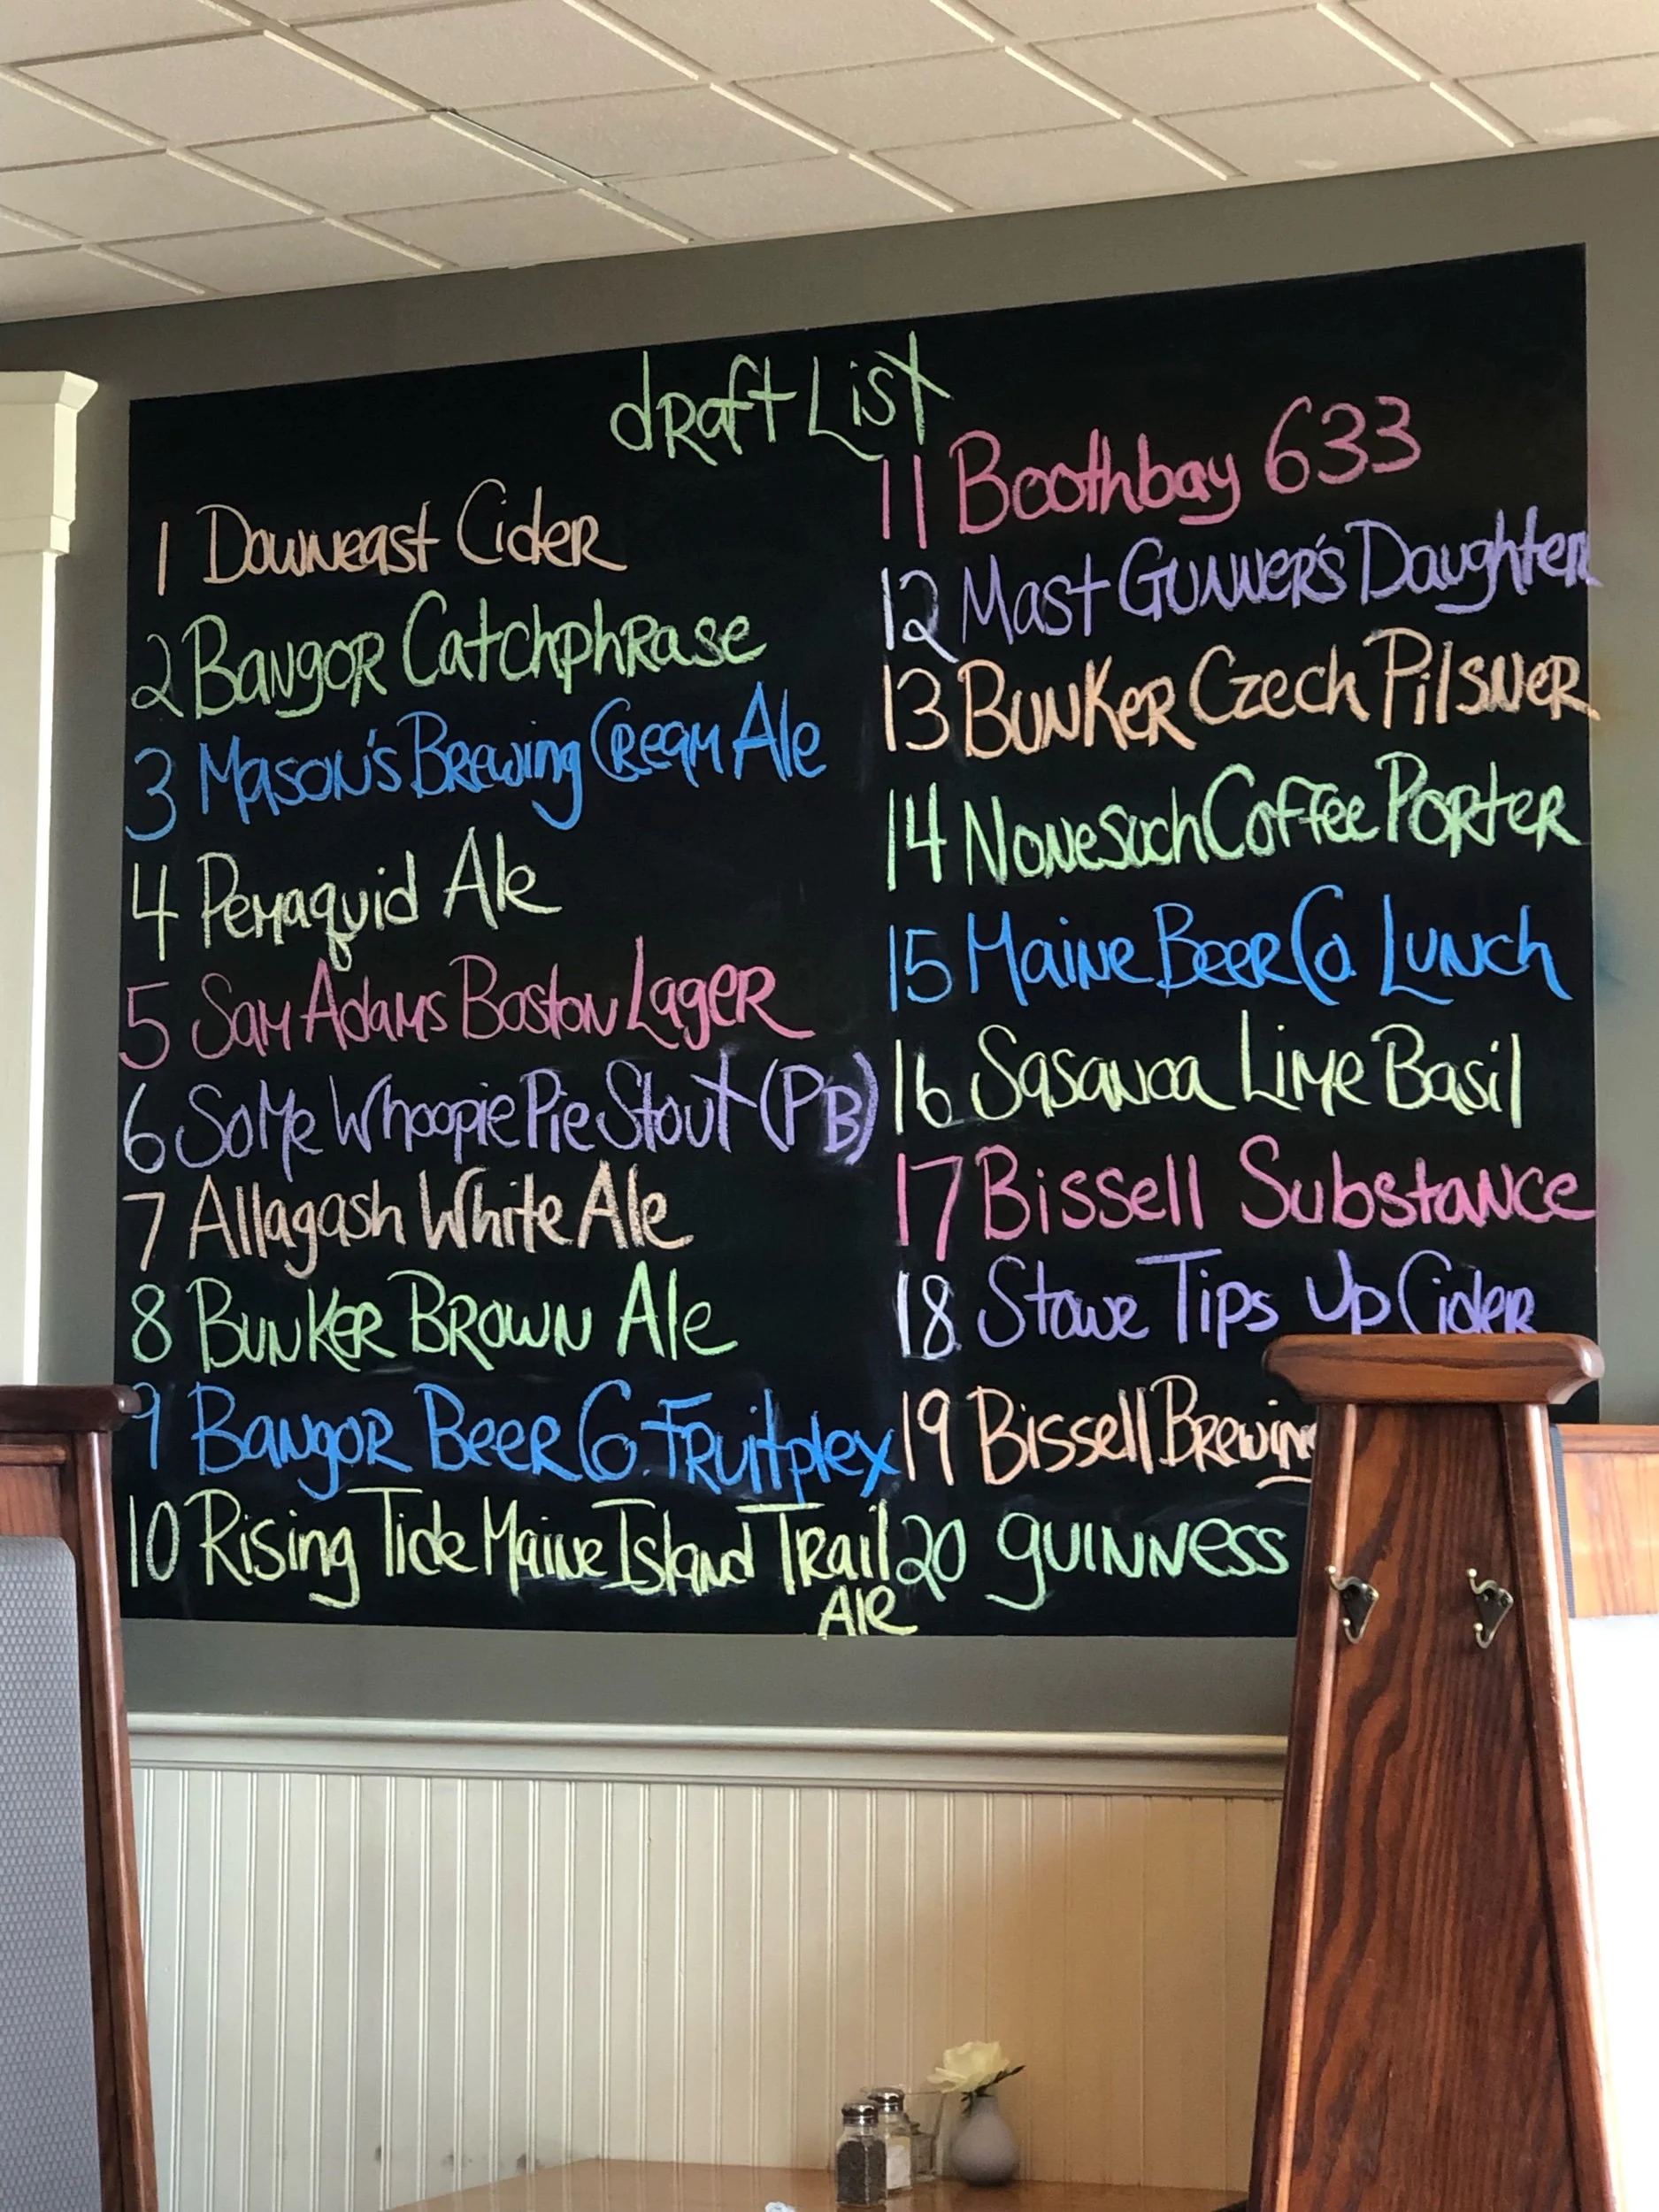 draft List
1 Downeast Cider
2 Bangor Catchphrase
3 Mason's Brewing Cream Ale
4 Pemaquid Ale
5 Sam Adams Boston Lager
6 SoMe Whoopie Pie Stout (PB)
7 Allagash White Ale
8 Bunker Brown Ale
9 Bangor Beer Co. Fruitplex
10 Rising Tide Maine Island Trail
Ale
11 Boothbay 633
12 Mast Gunner's Daughter
13 Bunker Czech Pilsner
14 Nonesuch Coffee Porter
15 Maine Beer Co. Lunch
16 Sasanoa Lime Basil
17 Bissell Substance
18 Stowe Tips Up Cider
19 Bissell Brewing
20 guinness